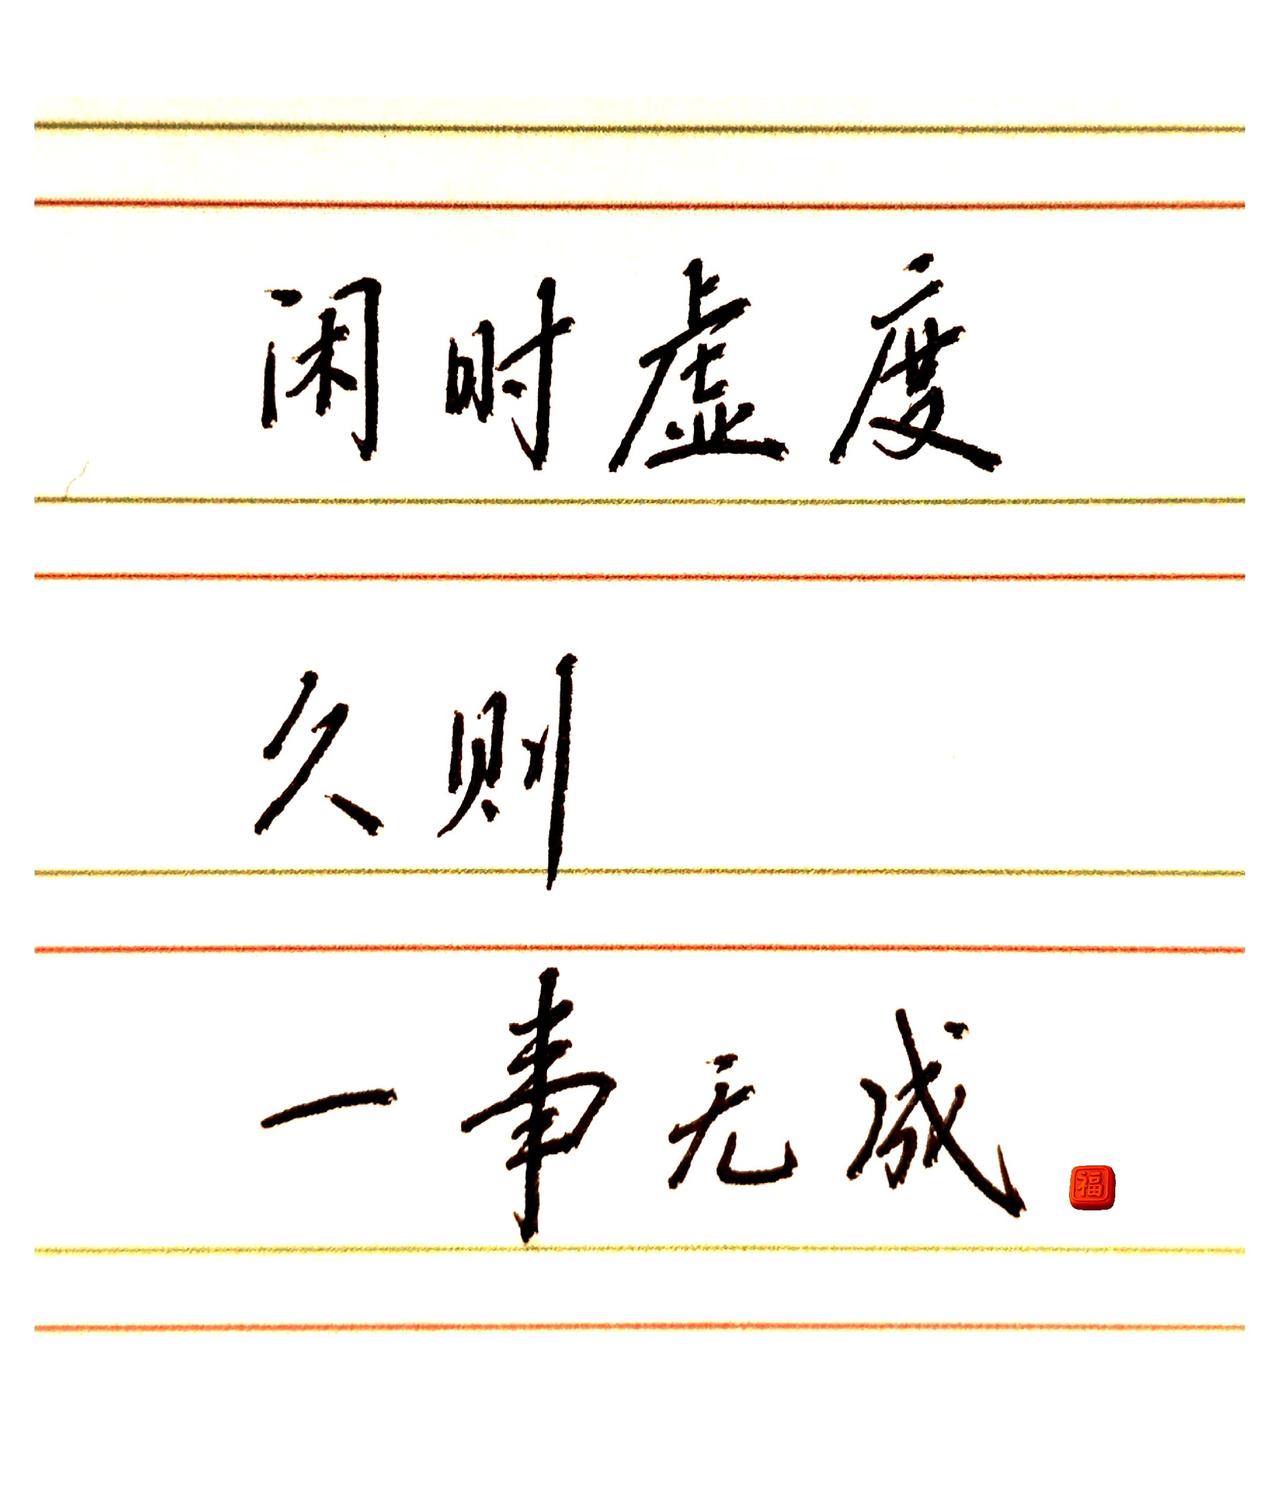 闲时虚度
久则
一事无成
福